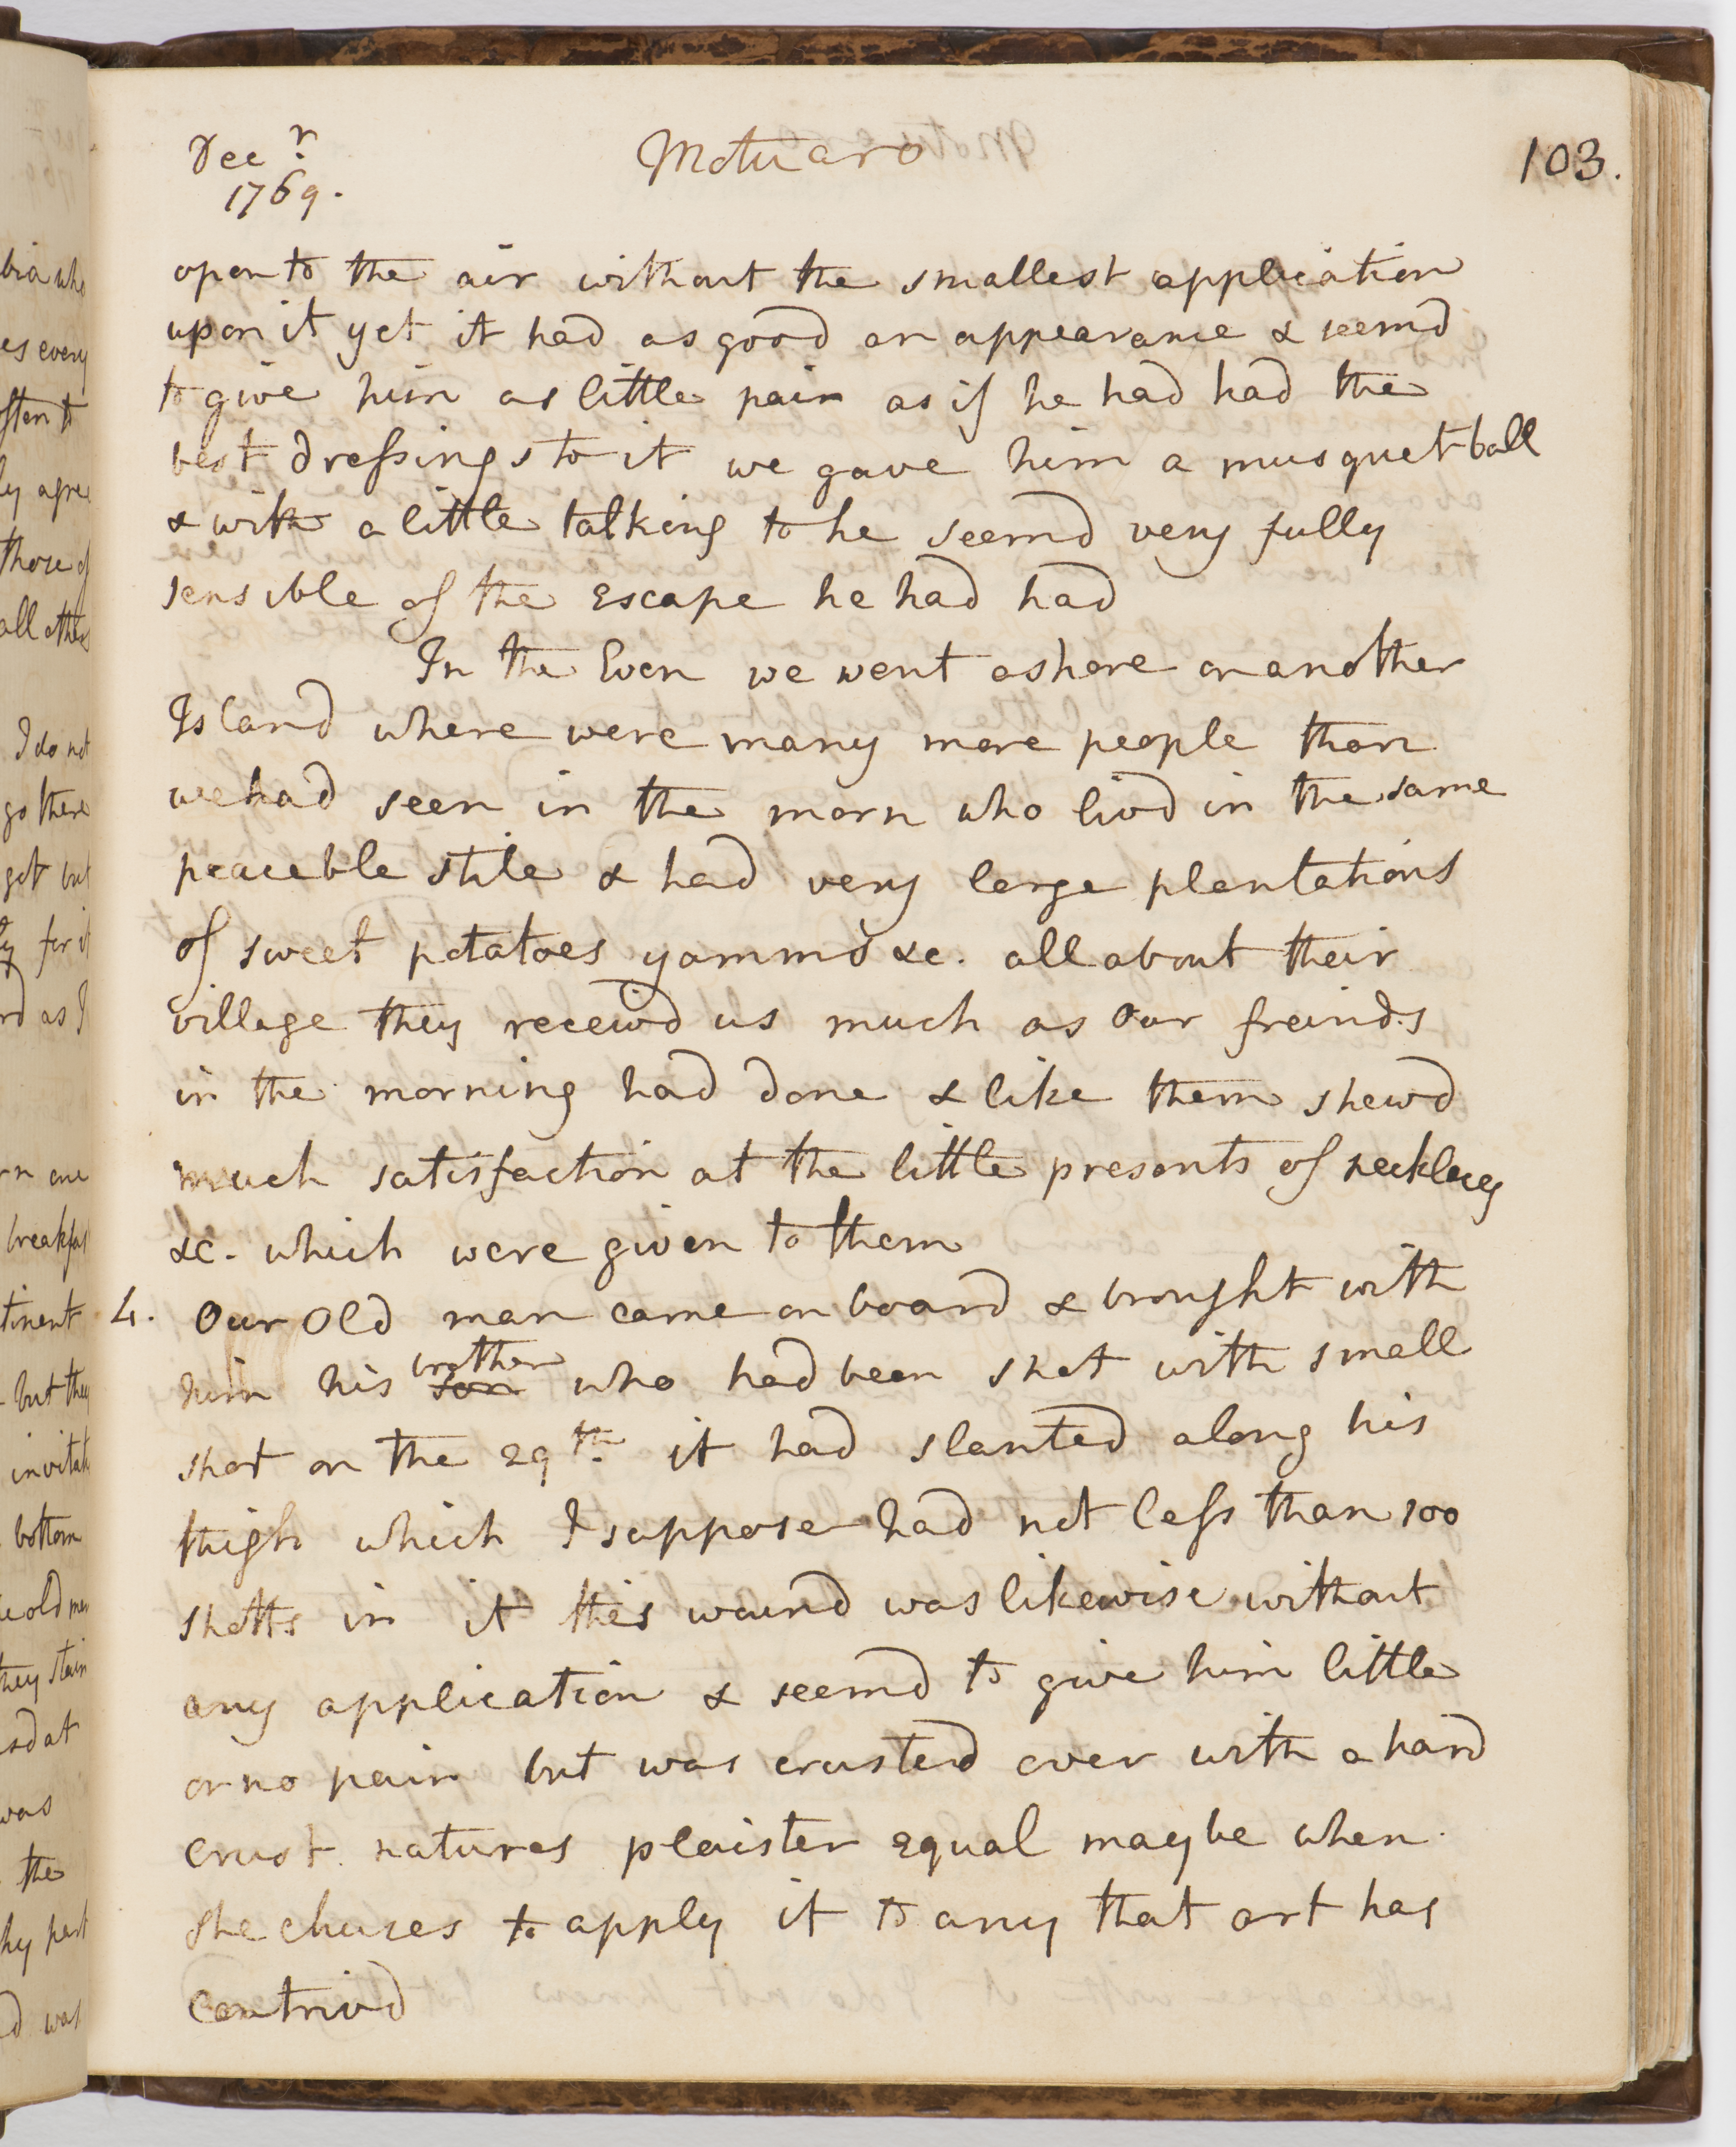 Decr. 1769.
Motuaro
103.
open to the air without the smallest application
upon it yet it had as good an appearance & seemd
to give him as little pain as if he had had the
best dressings to it we gave him a musquet ball
& with a little talking to he seemd very fully
sensible of the escape he had had
In the Even we went ashore on another
Island where were many more people than
we had seen in the morn who livd in the same
peaceble stile & had very large plantations
of sweet potatoes yamms &c. all about their
village they receivd us much as our freinds
in the morning had done & like them shewd
much satisfaction at the little presents of necklaces
&c. which were given to them
4. Our Old man came on board & brought with
him his son brother who had been shot with small
shot on the 29th. it had slanted along his
thigh which I suppose had not less than 100
shotts in it this wound was likewise without
any application & seemd to give him little
or no pain but was crusted over with a hard
crust natures plaister equal maybe when
she chuses to apply it to any that art has
contrivd
bia who
es every
ften to
ly agree
those of
all others
I do not
go there
get but
for it
rd as I
rn one
breakfast
tinent
but they
invitati
bottom
e old men
they stain
sd at
was
the
hy part
d was